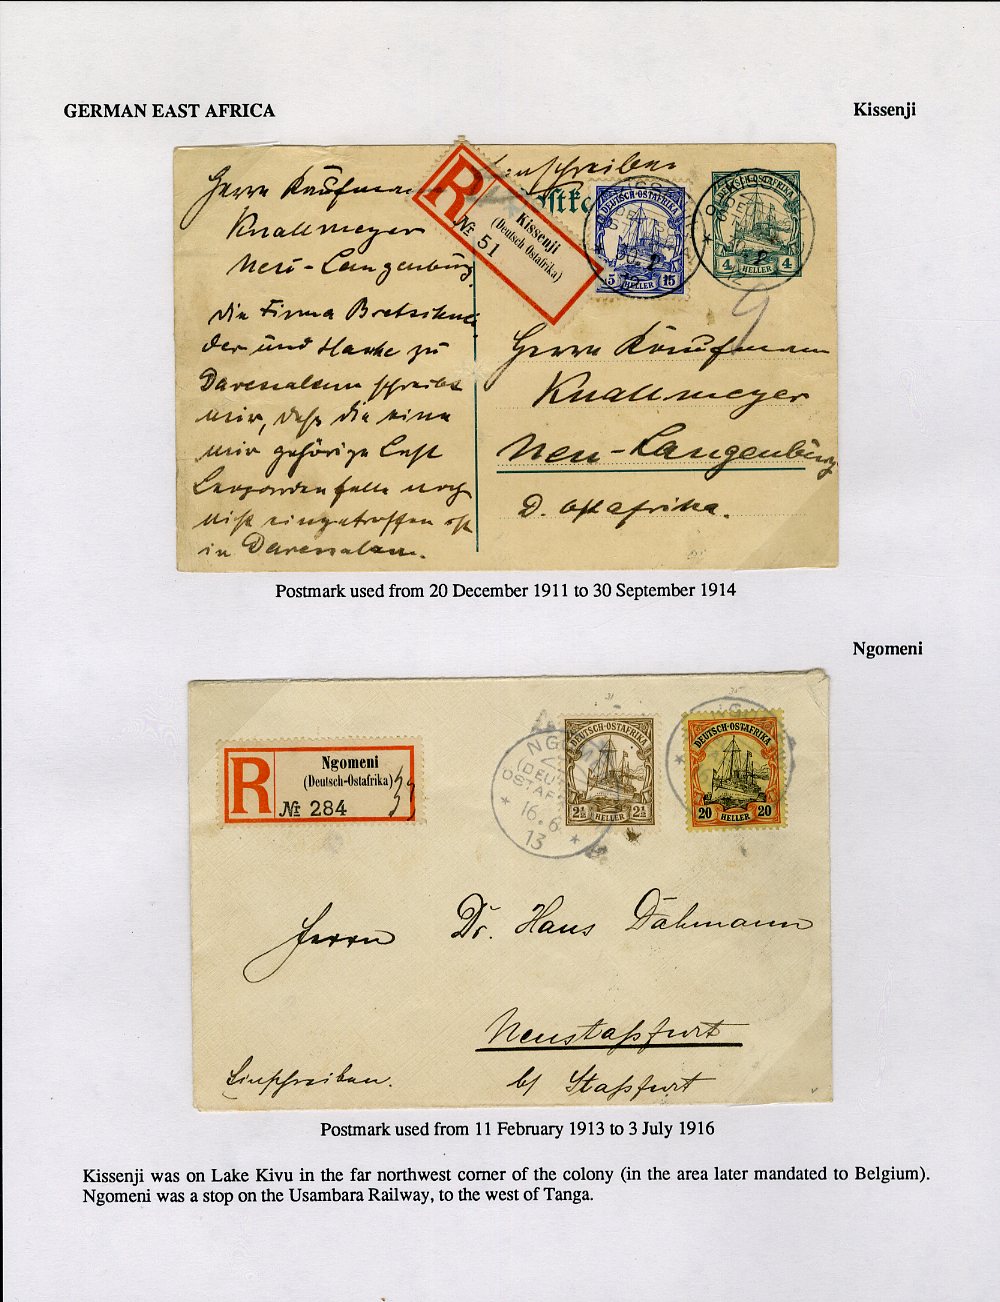 GERMAN EAST AFRICA
Kissenji
Einschreiben
Postkarte
R
Kissenji
(Deutsch-Ostafrika)
№ 51
DEUTSCH-OSTAFRIKA
15 15
HELLER
DEUTSCH-OSTAFRIKA
4 4
HELLER
9
Herrn Kaufmann
Knallmeyer
Neu-Langenburg.
die Firma Bretschnei
der und Hasche zu
Daressalam schreibt
mir, daß die eine
mir gehörige Last
Leopardenfelle noch
nicht eingetroffen ist
in Daressalam.
Herrn Kaufmann
Knallmeyer
Neu-Langenburg
D. Ostafrika.
Postmark used from 20 December 1911 to 30 September 1914
Ngomeni
R
Ngomeni
(Deutsch-Ostafrika)
№ 284
NGOMENI
(DEUTSCH-
OSTAFRIKA)
16.6
13
DEUTSCH-OSTAFRIKA
2½ 2½
HELLER
DEUTSCH-OSTAFRIKA
20 20
HELLER
Herrn Dr. Hans Dahmann
Neustaßfurt
b/ Staßfurt
Einschreiben.
Postmark used from 11 February 1913 to 3 July 1916
Kissenji was on Lake Kivu in the far northwest corner of the colony (in the area later mandated to Belgium).
Ngomeni was a stop on the Usambara Railway, to the west of Tanga.